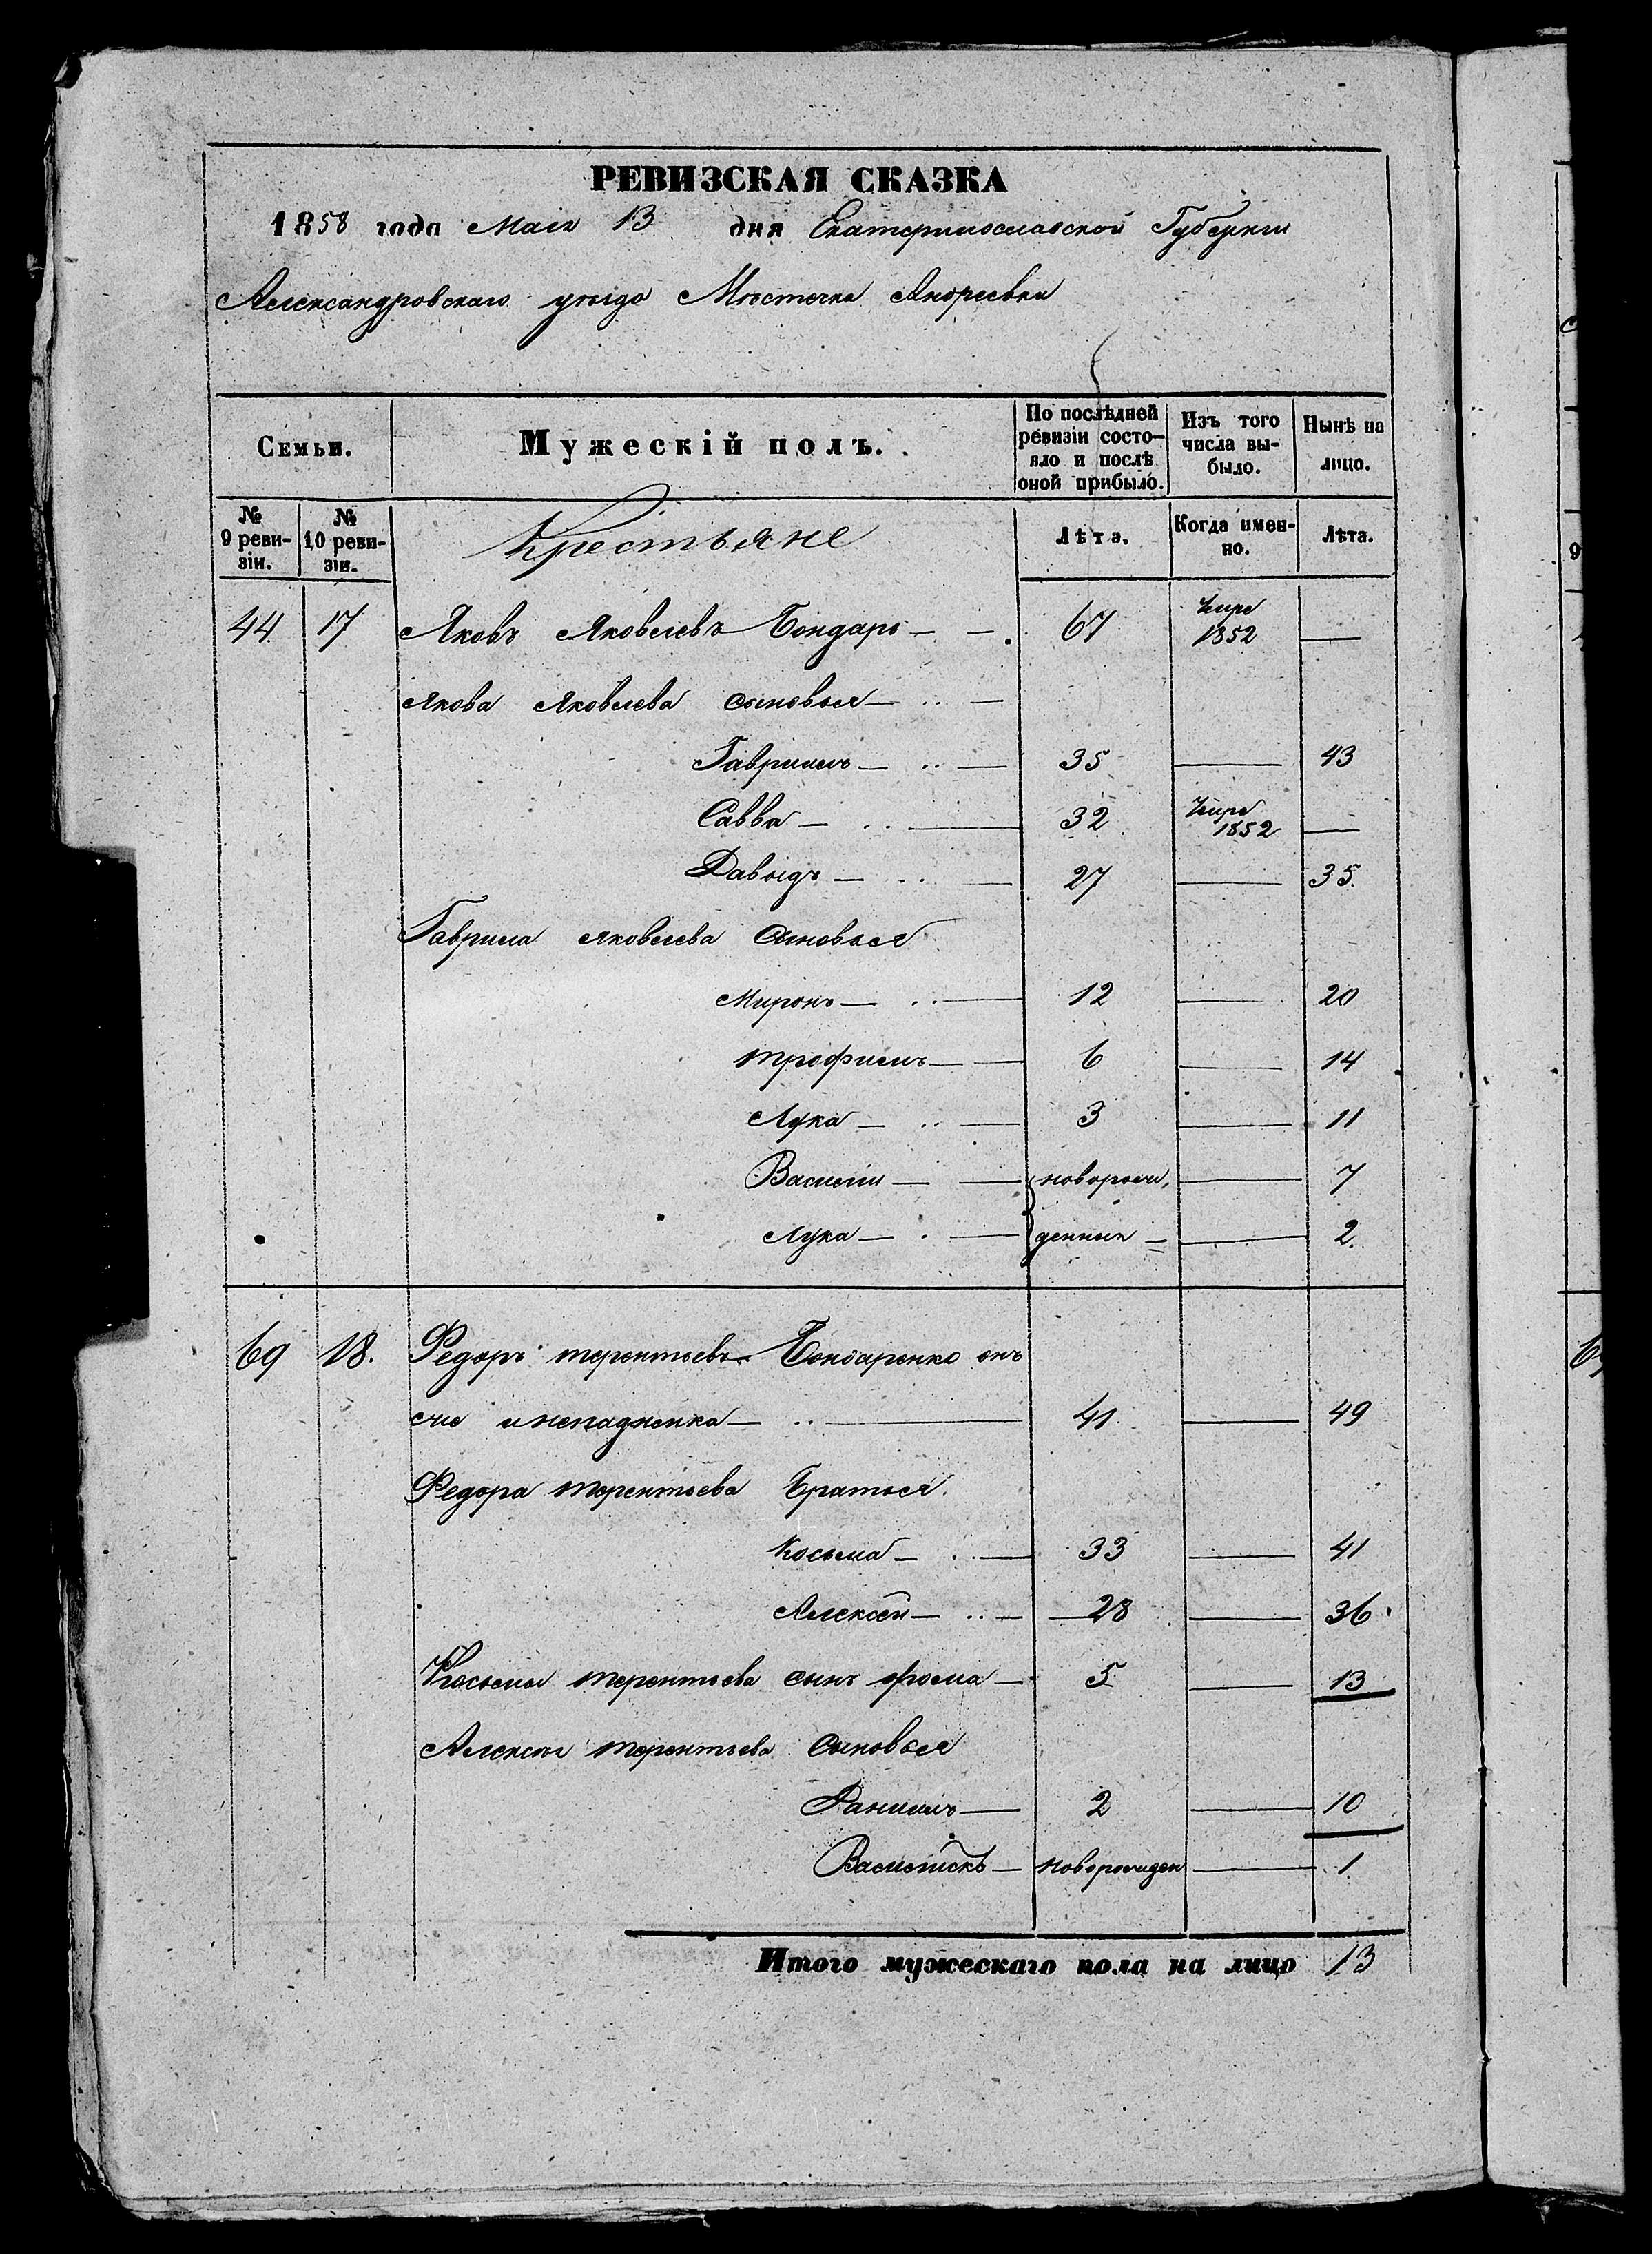 РЕВИЗСКАЯ СКАЗКА
1858 года Маія 13 дня Екатеринославской Губерніи
Александровскаго уѣзда Мѣстечка Андреевки
Семьи. Мужескій полъ. По послѣдней ревизіи состояло и послѣ оной прибыло. Изъ того числа выбыло. Нынѣ на лицо.
№ 9 ревизіи. № 10 ревизіи. Крестьяне Лѣта. Когда именно. Лѣта.
44 17 Яковъ Яковлевъ Бондарь — — 67 Умре 1852 —
Якова Яковлева сыновья — —
Гавріилъ — — 35 — 43
Савва — — 32 Умре 1852 —
Давыдъ — — 27 — 35.
Гаврила Яковлева Сыновья
Миронъ — — 12 — 20
Трофимъ — — 6 — 14
Лука — — 3 — 11
Василій — — новорож, — 7
Лука — — денныи — 2.
69 18. Федоръ терентьевъ Бондаренко онъ
же — — 41 — 49
Федора терентьева Братья.
Косьма — — 33 — 41
Алексѣй — — 28 — 36.
Косьмы терентьева сынъ фома — 5 — 13
Алексѣя терентьева Сыновья
Даніилъ — 2 — 10
Василискъ — новорожден — 1
Итого мужескаго пола на лицо 13